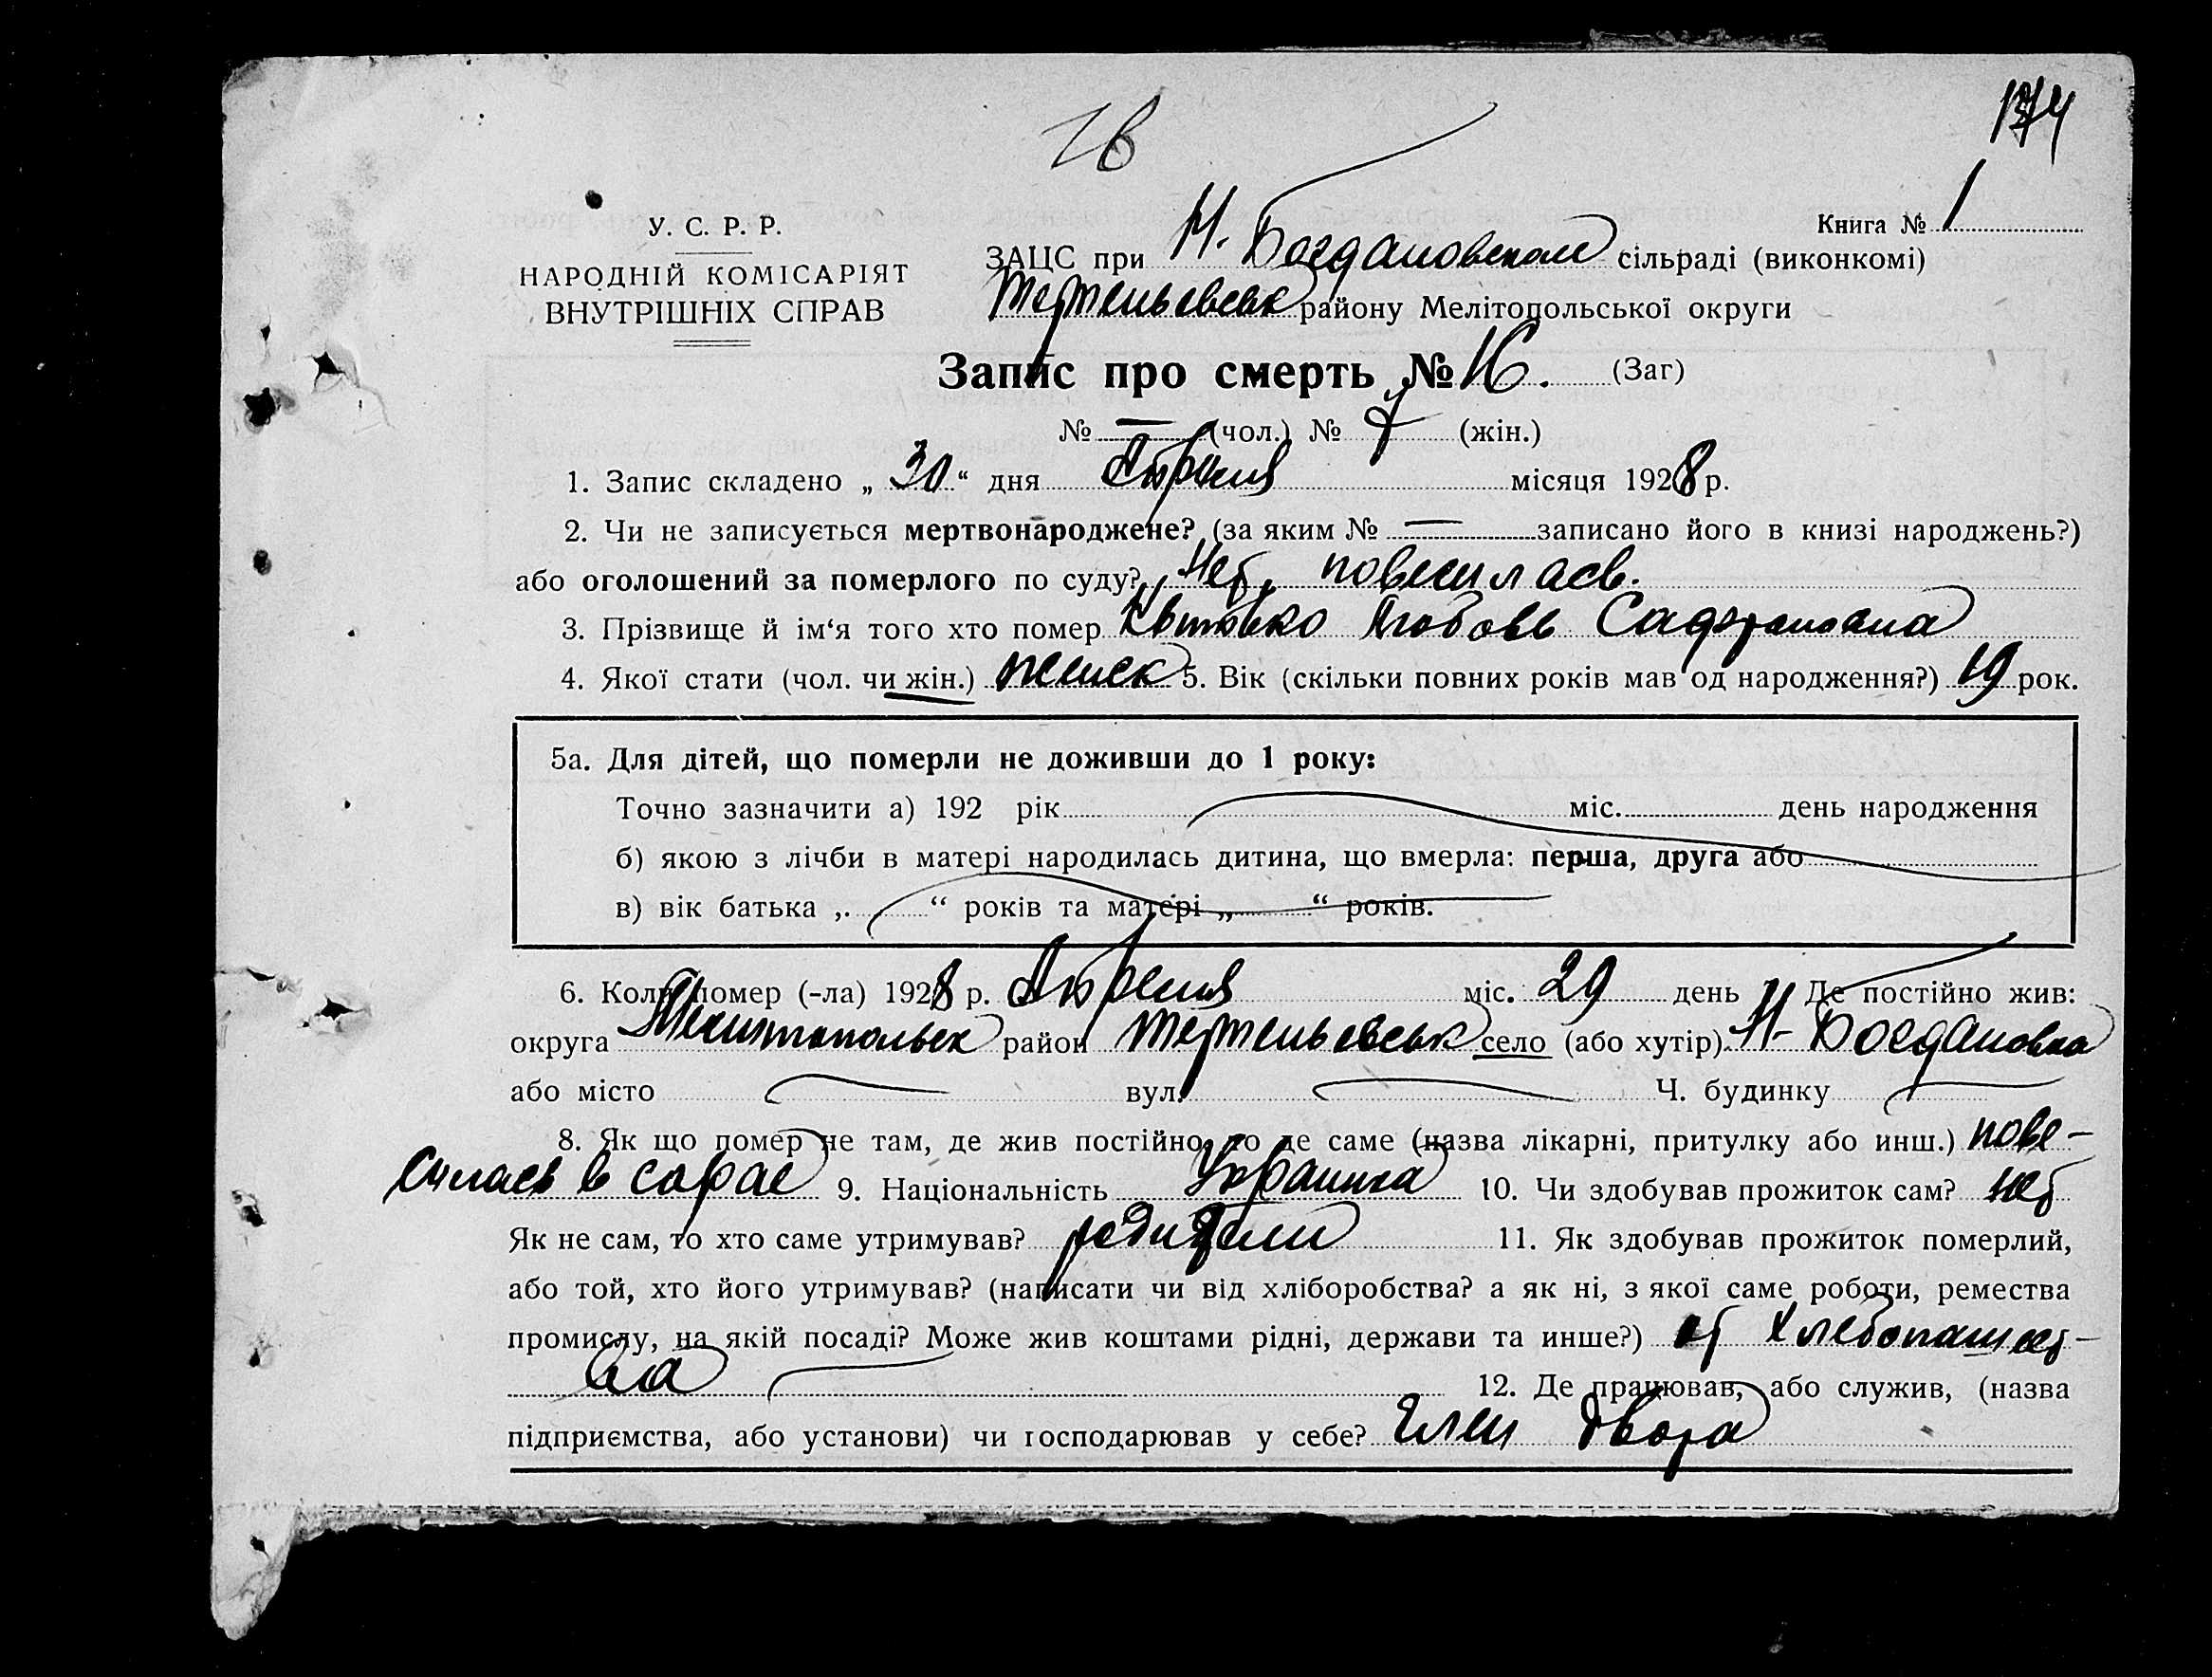 174
Книга № 1
У. С. Р. Р.
НАРОДНІЙ КОМІСАРІЯТ
ВНУТРІШНІХ СПРАВ
ЗАЦС при Н. Богдановском сільраді (виконкомі)
району Мелітопольської округи
Запис про смерть № 16. (Заг)
№ — (чол.) № (жін.)
1. Запис складено „ 30 “ дня Апреля місяця 1928 р.
2. Чи не записується мертвонароджене? (за яким № — записано його в книзі народжень?)
або оголошений за померлого по суду? Нет, повесилась.
3. Прізвище й ім‘я того хто помер Любовь
4. Якої стати (чол. чи жін.) женск 5. Вік (скільки повних років мав од народження?) 19 рок.
5а. Для дітей, що померли не доживши до 1 року:
Точно зазначити а) 192 рік міс. день народження
б) якою з лічби в матері народилась дитина, що вмерла: перша, друга або
в) вік батька „ “ років та матері „ “ років.
6. Коли помер (-ла) 1928 р. Апреля міс. 29 день 7. Де постійно жив:
округа Мелитопольск район село (або хутір) Н-Богдановка
або місто вул. Ч. будинку
8. Як що помер не там, де жив постійно, то де саме (назва лікарні, притулку або инш.) пове-
силась в сарае 9. Національність Украинка 10. Чи здобував прожиток сам? нет
Як не сам, то хто саме утримував? родители 11. Як здобував прожиток померлий,
або той, хто його утримував? (написати чи від хліборобства? а як ні, з якої саме роботи, ремества
промислу, на якій посаді? Може жив коштами рідні, держави та инше?) от хлебопашест-
ва 12. Де працював, або служив, (назва
підприємства, або установи) чи господарював у себе? Член двора